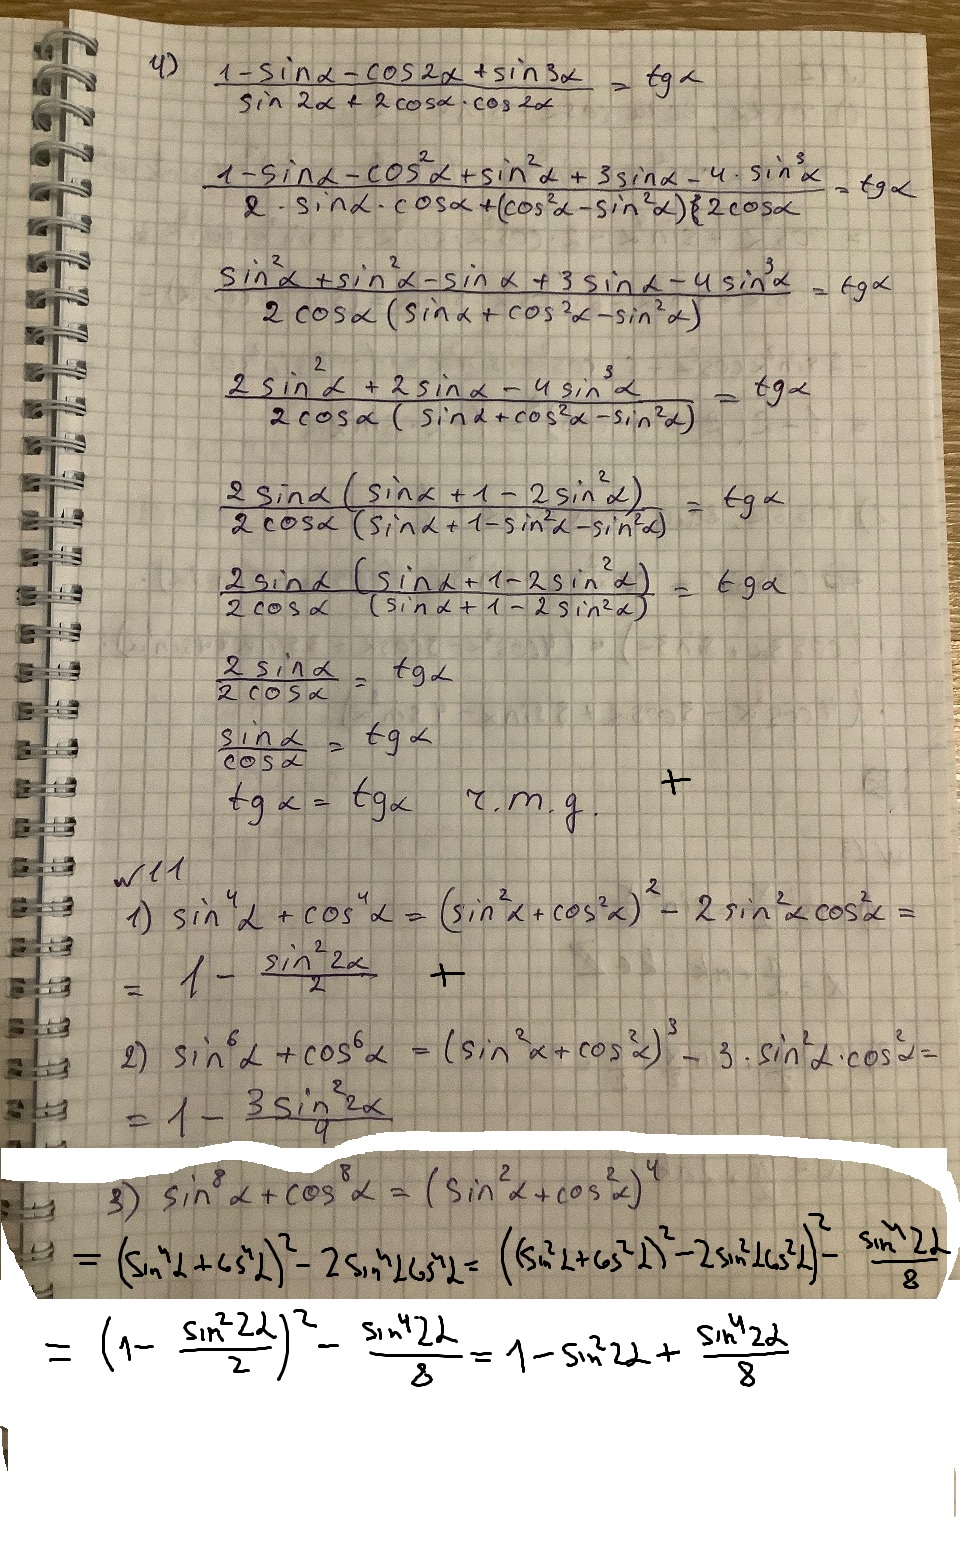 4) (1-sinα-cos2α+sin3α)/(sin2α+2cosα·cos2α) = tgα
(1-sinα-cos²α+sin²α+3sinα-4·sin³α)/(2·sinα·cosα+(cos²α-sin²α)2cosα) = tgα
(sin²α+sin²α-sinα+3sinα-4sin³α)/(2cosα(sinα+cos²α-sin²α)) = tgα
(2sin²α+2sinα-4sin³α)/(2cosα(sinα+cos²α-sin²α)) = tgα
(2sinα(sinα+1-2sin²α))/(2cosα(sinα+1-sin²α-sin²α)) = tgα
(2sinα(sinα+1-2sin²α))/(2cosα(sinα+1-2sin²α)) = tgα
(2sinα)/(2cosα) = tgα
sinα/cosα = tgα
tgα = tgα ч.т.д. +
№11
1) sin⁴α+cos⁴α = (sin²α+cos²α)² - 2sin²αcos²α =
= 1 - (sin²2α)/2 +
2) sin⁶α+cos⁶α = (sin²α+cos²α)³ - 3·sin²α·cos²α =
= 1 - (3sin²2α)/4
3) sin⁸α+cos⁸α = (sin²α+cos²α)⁴
= (sin⁴α+cos⁴α)² - 2sin⁴αcos⁴α = ((sin²α+cos²α)² - 2sin²αcos²α)² - (sin⁴2α)/8
= (1 - (sin²2α)/2)² - (sin⁴2α)/8 = 1 - sin²2α + (sin⁴2α)/8